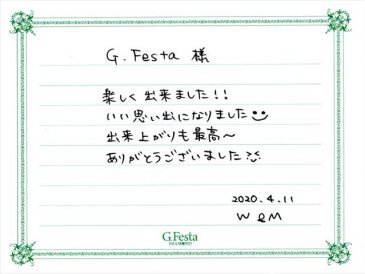 G. Festa 様
楽しく出来ました!!
いい思い出になりました
出来上がりも最高〜
ありがとうございました
2020.4.11
W&M
G.Festa
DIAMOND